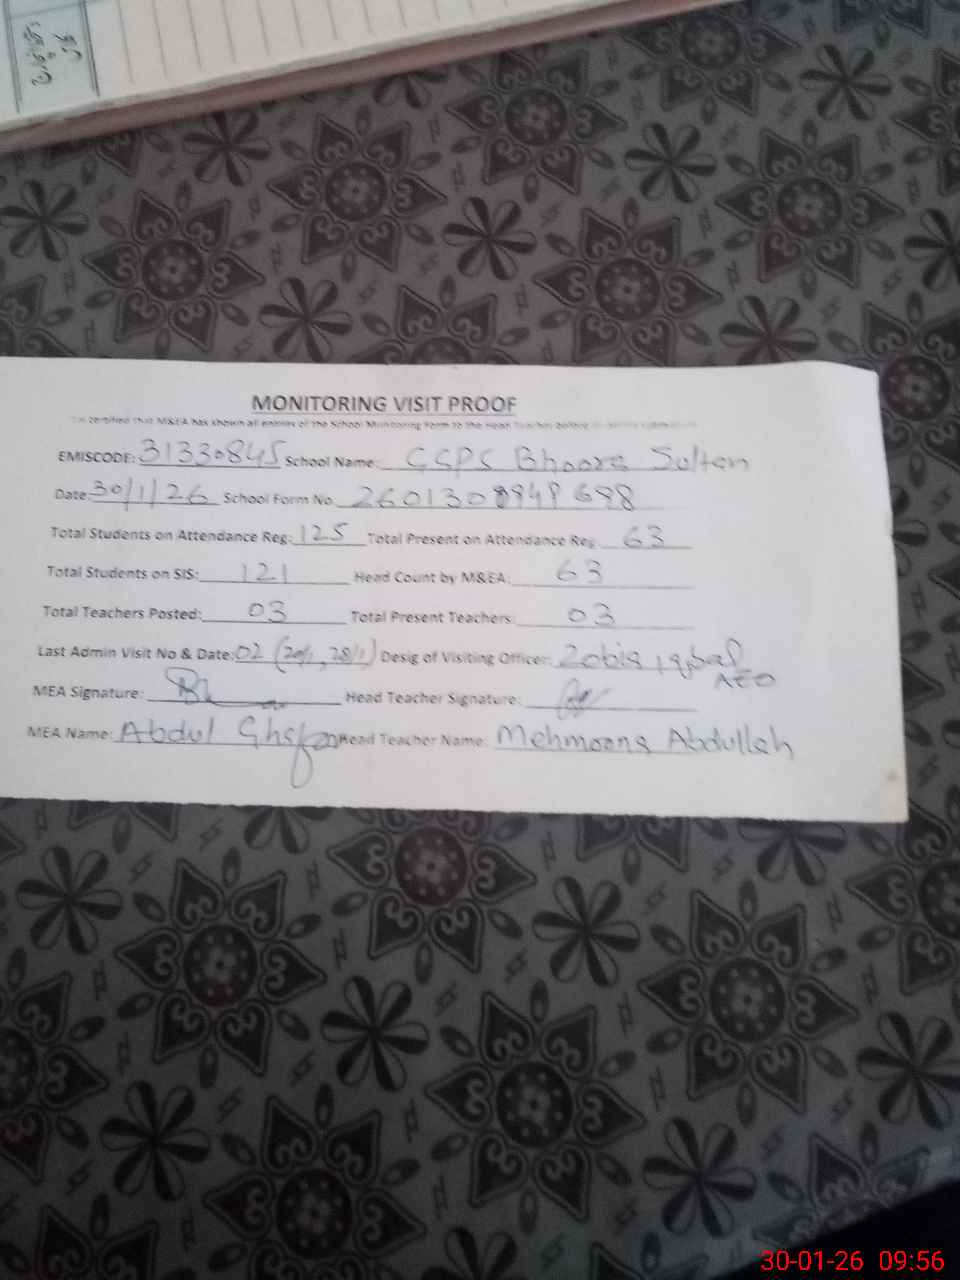 MONITORING VISIT PROOF
certified that M&EA has shown all entries of the School Monitoring Form to the Head Teacher before
EMISCODE: 31330845 School Name: GSPS Bhoora Sultan
Date: 30/1/26 School Form No. 2601308948688
Total Students on Attendance Reg: 125 Total Present on Attendance Reg: 63
Total Students on SIS: 121 Head Count by M&EA: 63
Total Teachers Posted: 03 Total Present Teachers: 03
Last Admin Visit No & Date: 02 (20/1, 28/1) Desig of Visiting Officer: Zobia Iqbal
AEO
MEA Signature: Head Teacher Signature:
MEA Name: Abdul Ghafoor Head Teacher Name: Mehmoona Abdullah
30-01-26 09:56